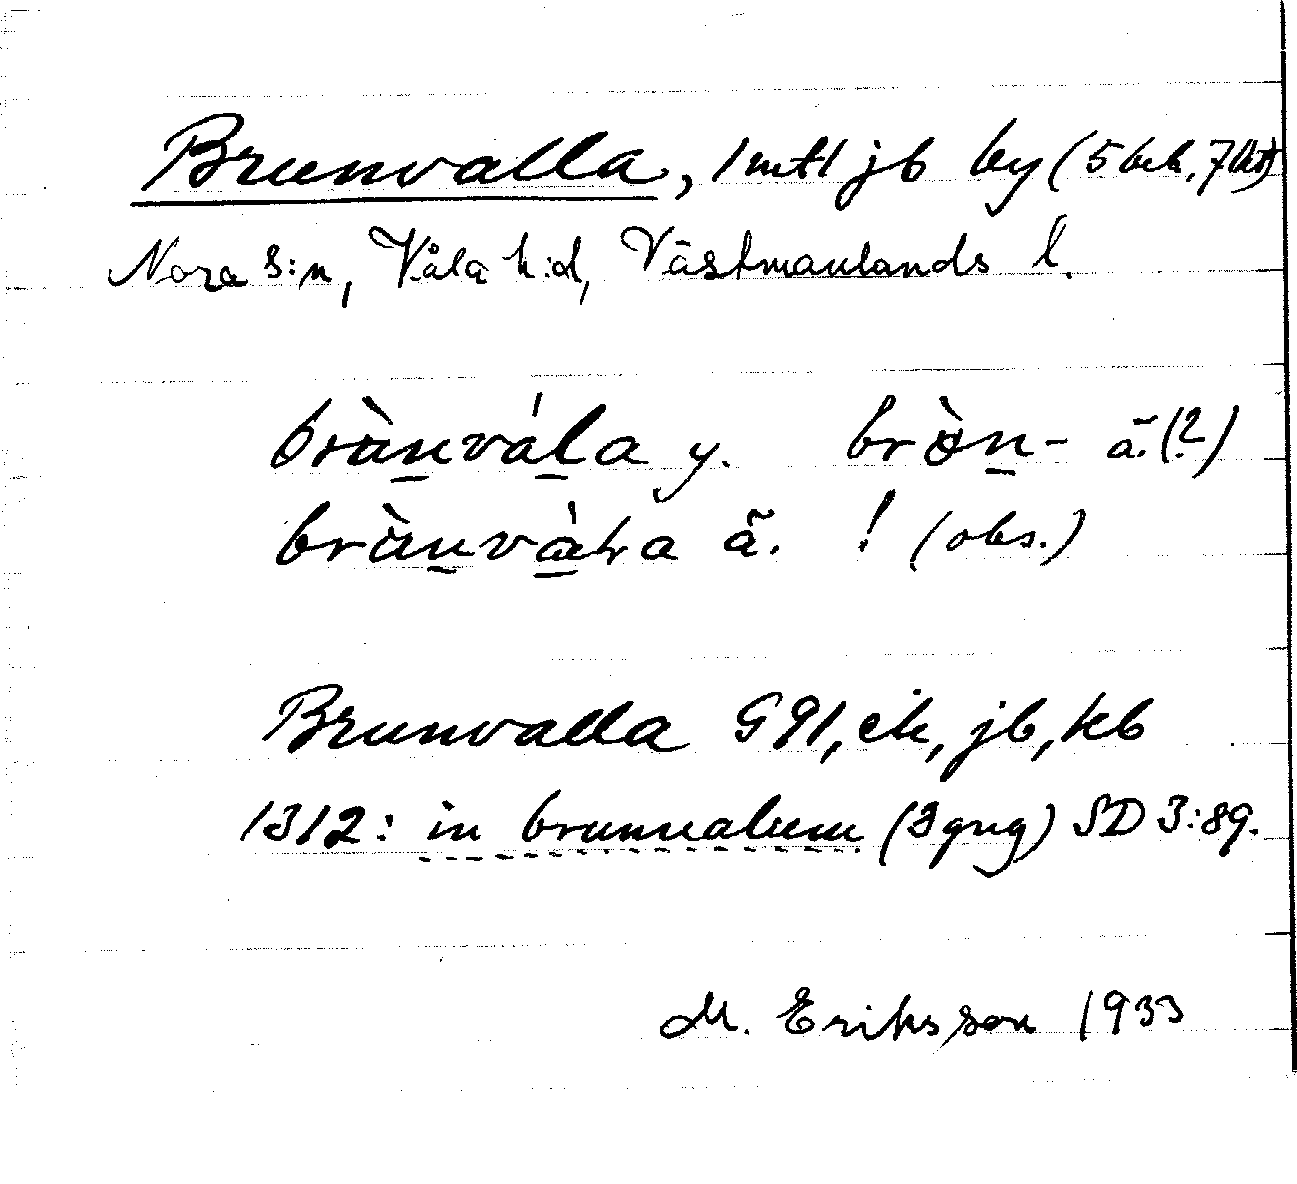 Brunvalla, 1 mtl jb by (5 brk, 7 lht)
Nora s:n, Våla h:d, Västmanlands l.
brùnvála y. bròn- ä.(?)
brùnvàha ä. ! (obs.)
Brunvalla G 91, ek, jb, kb
1312: in brunnalum (3 gng) SD 3:89.
M. Eriksson 1933